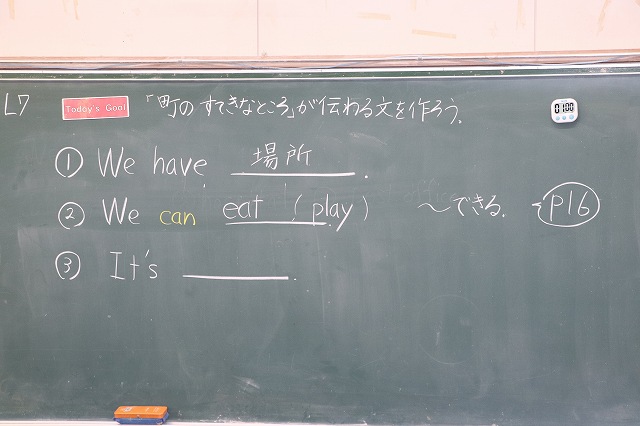 L7 Today's Goal 「町のすてきなところ」が伝わる文を作ろう。 01:00
① We have 場所.
② We can eat (play) ~できる。 P16
③ It's ___.